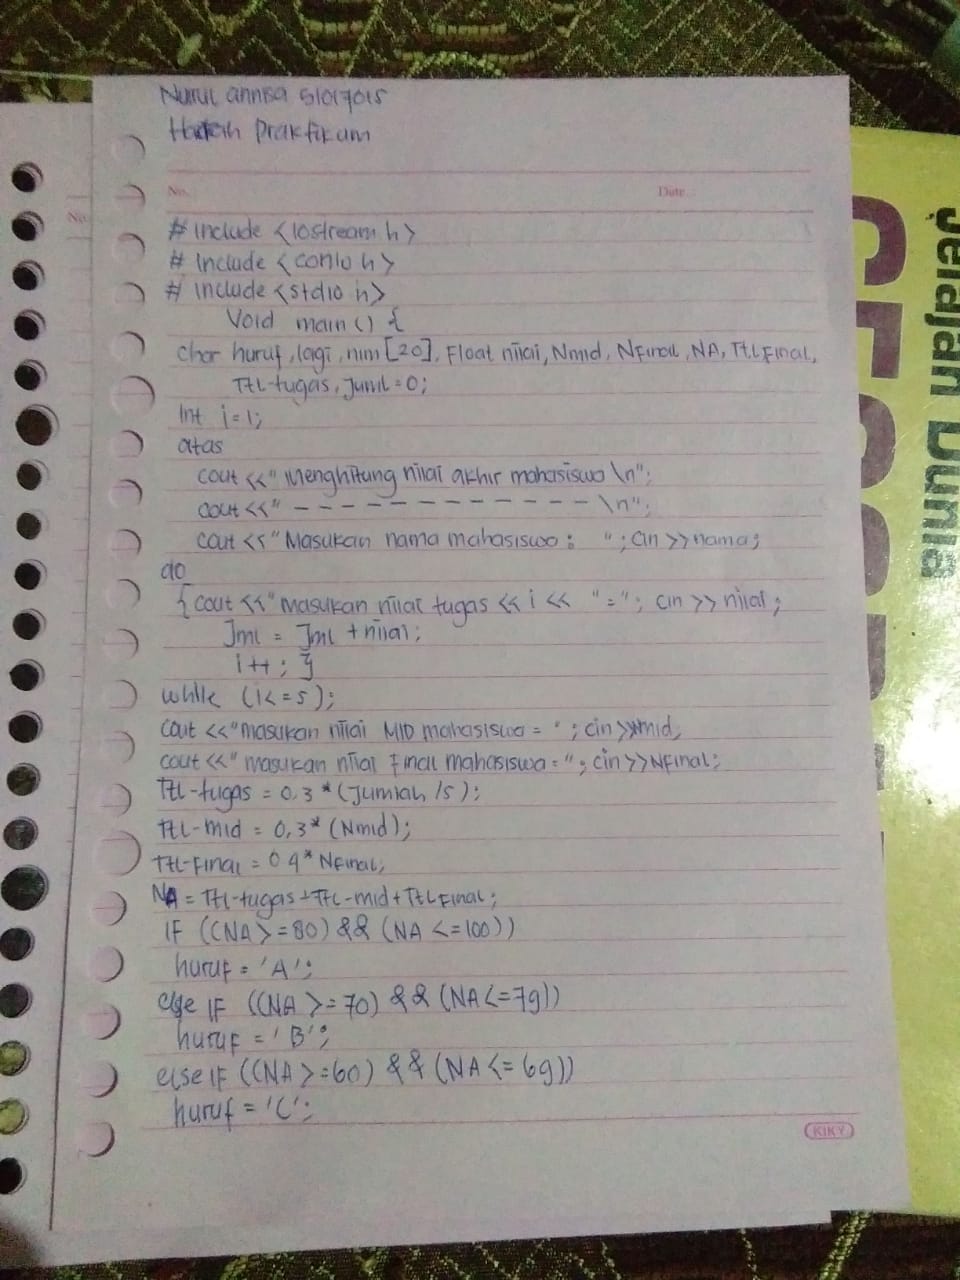 Nurul annisa 51017015
Praktikum
No.
Date.
No.
# include <iostream.h>
# include <conio h>
# include <stdio h>
Void main () {
char huruf, lagi, nim [20], Float nilai, Nmid, NFinal, NA, TtLFinal,
TtL-tugas, Jumil = 0;
Int i = 1;
atas
cout << " Menghitung nilai akhir mahasiswa \n";
cout << " - - - - - - - - - - - - - \n";
cout << "Masukan nama mahasiswa : "; cin >> nama;
do
{ cout << "masukan nilai tugas << i << "="; cin >> nilai;
Jml = Jml + nilai;
i++; }
while (i <= 5);
cout << "masukan nilai MID mahasiswa = "; cin >> Nmid,
cout << "masukan nilai Final mahasiswa = "; cin >> NFinal;
TtL-tugas = 0,3 * (Jumlah /5);
TtL-mid = 0,3* (Nmid);
TtL-Final = 0 4* NFinal,
NA = TtL-tugas + TtL-mid + TtLFinal;
IF ((NA >= 80) && (NA <= 100))
huruf = 'A';
else IF ((NA >= 70) && (NA <= 79))
huruf = 'B';
else IF ((NA >= 60) && (NA <= 69))
huruf = 'C';
KIKY
Jelajah Dunia